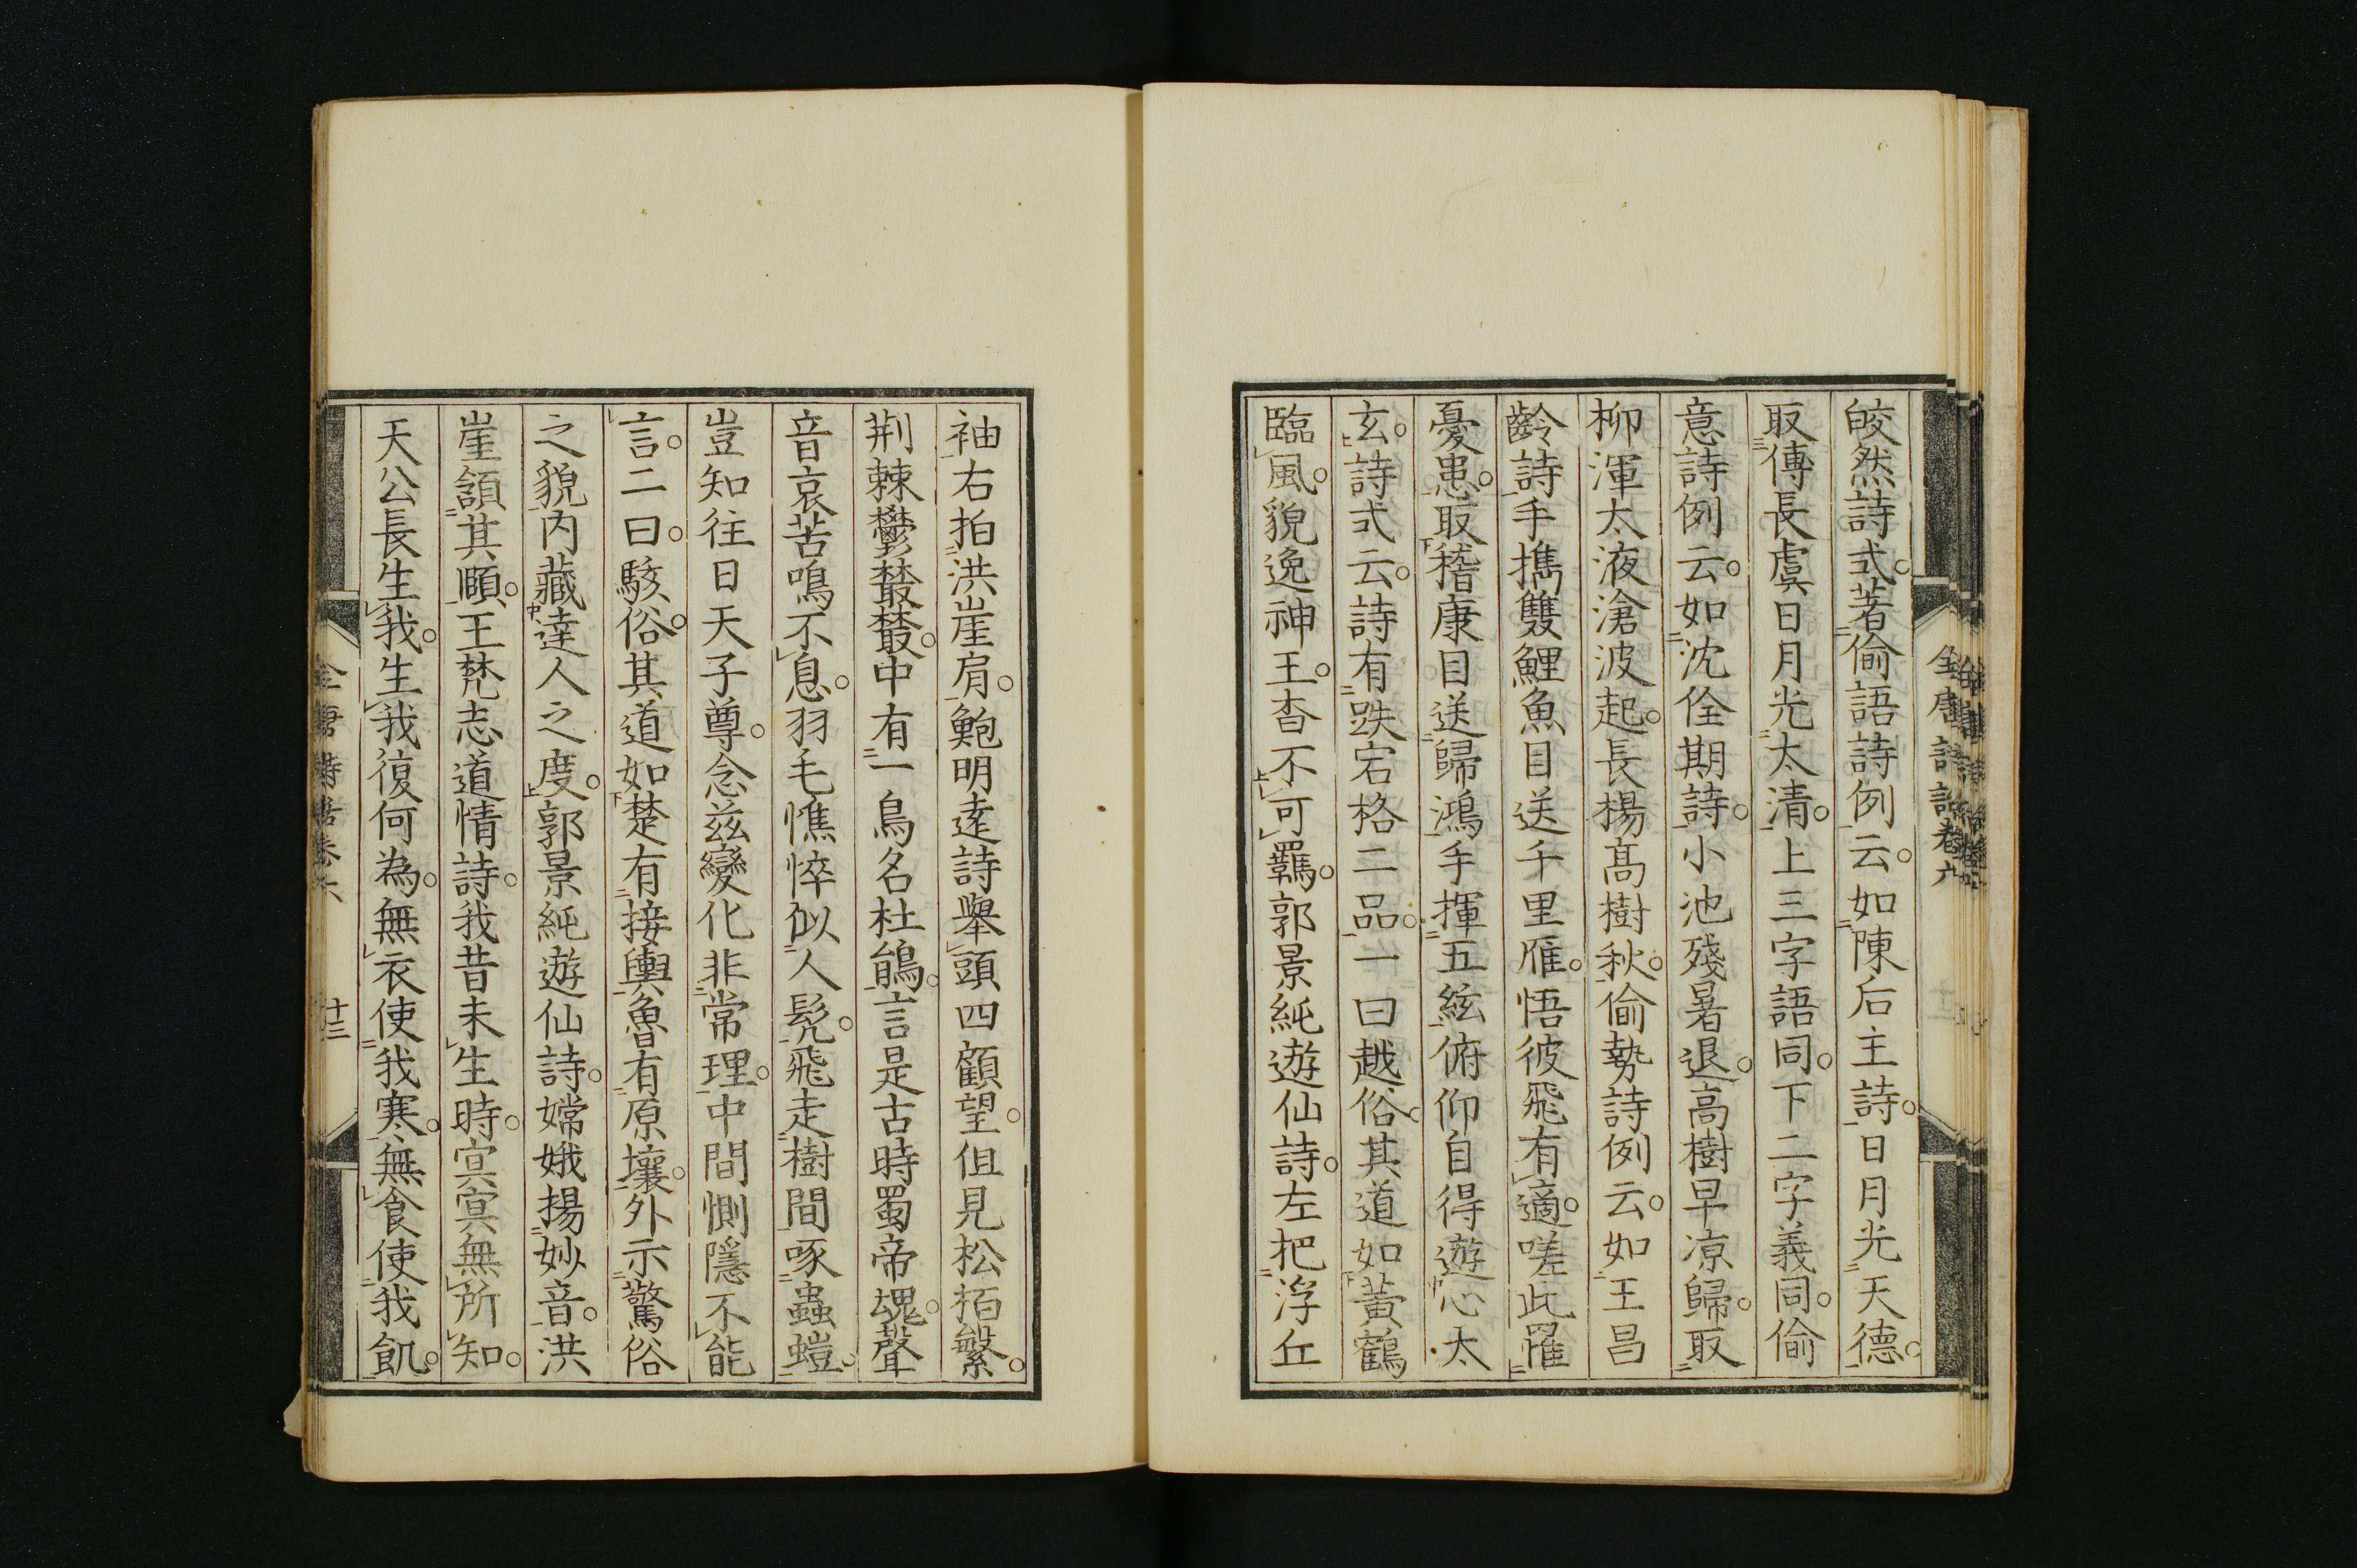 皎然詩式。著偷語詩例云。如陳后主詩。日月光天德。
取傅長虞日月光太清。上三字語同。下二字義同。偷
意詩例云。如沈佺期詩。小池殘暑退。高樹早凉歸。取
柳渾太液滄波起。長楊高樹秋。偷勢詩例云。如王昌
齡詩手攜雙鯉魚目送千里雁。悟彼飛有適。嗟此罹
憂患。取嵇康目送歸鴻手揮五絃俯仰自得遊心太
玄。詩式云。詩有跌宕格二品。一曰越俗。其道如黃鶴
臨風。貌逸神王。杳不可羈。郭景純遊仙詩。左把浮丘
全唐詩話卷六
袖右拍洪崖肩。鮑明遠詩舉頭四顧望。但見松栢繁。
荆棘鬱蓁蓁。中有一鳥名杜鵑。言是古時蜀帝魂。聲
音哀苦鳴不息。羽毛憔悴似人髡。飛走樹間啄蟲螘。
豈知往日天子尊。念兹變化非常理。中間惻隱不能
言。二曰。駭俗。其道如楚有接輿魯有原壤。外示驚俗
之貌內藏達人之度。郭景純遊仙詩。嫦娥揚妙音。洪
崖頷其頤。王梵志道情詩。我昔未生時。冥冥無所知。
天公長生我。生我復何為。無衣使我寒。無食使我飢。
全唐詩話卷六
十三